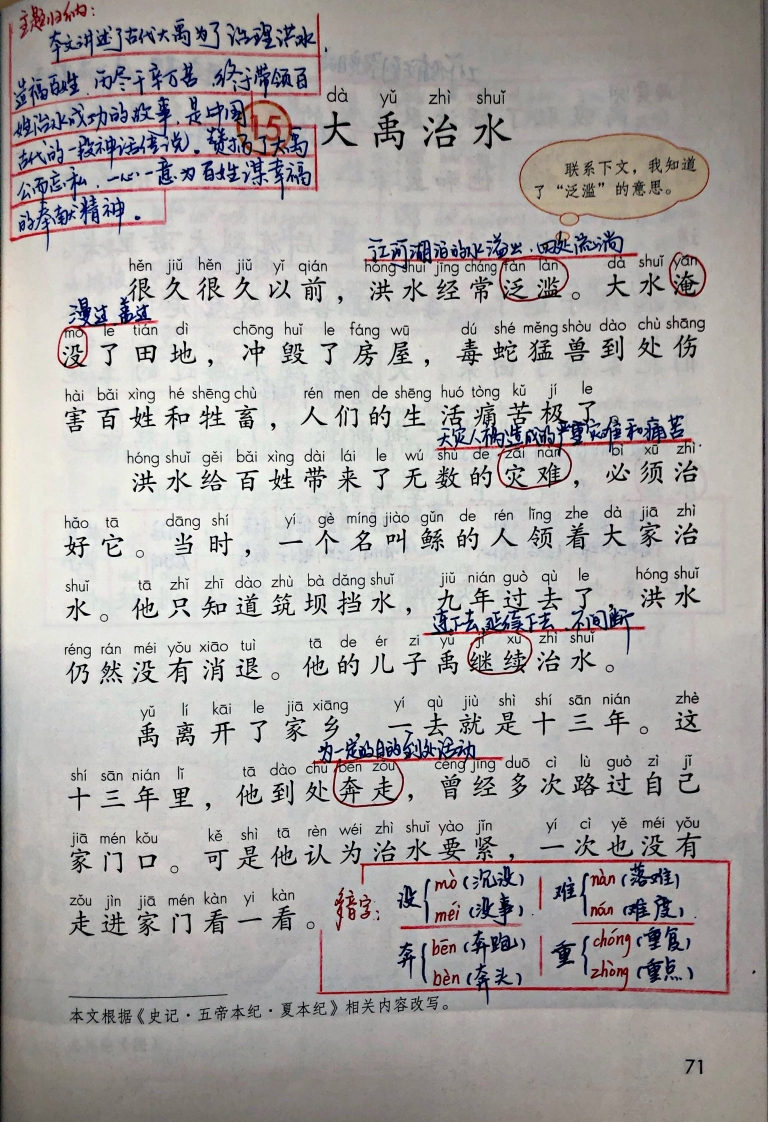 主题归纳：
本文讲述了古代大禹为了治理洪水，
造福百姓，历尽千辛万苦，终于带领百
姓治水成功的故事，是中国
古代的一段神话传说。赞扬了大禹
公而忘私，一心一意为百姓谋幸福
的奉献精神。
15
dà yǔ zhì shuǐ
大禹治水
联系下文，我知道
了“泛滥”的意思。
江河湖泊的水溢出，四处流淌
hěn jiǔ hěn jiǔ yǐ qián hóng shuǐ jīng cháng fàn làn dà shuǐ yān
很久很久以前，洪水经常泛滥。大水淹
漫过 盖过
mò le tián dì chōng huǐ le fáng wū dú shé měng shòu dào chù shāng
没了田地，冲毁了房屋，毒蛇猛兽到处伤
hài bǎi xìng hé shēng chù rén men de shēng huó tòng kǔ jí le
害百姓和牲畜，人们的生活痛苦极了。
天灾人祸造成的严重灾难和痛苦
hóng shuǐ gěi bǎi xìng dài lái le wú shù de zāi nàn bì xū zhì
洪水给百姓带来了无数的灾难，必须治
hǎo tā dāng shí yí gè míng jiào gǔn de rén lǐng zhe dà jiā zhì
好它。当时，一个名叫鲧的人领着大家治
shuǐ tā zhǐ zhī dào zhù bà dǎng shuǐ jiǔ nián guò qù le hóng shuǐ
水。他只知道筑坝挡水，九年过去了，洪水
连下去，延续下去，不间断
réng rán méi yǒu xiāo tuì tā de ér zi yǔ jì xù zhì shuǐ
仍然没有消退。他的儿子禹继续治水。
yǔ lí kāi le jiā xiāng yí qù jiù shì shí sān nián zhè
禹离开了家乡，一去就是十三年。这
为一定的目的到处活动
shí sān nián lǐ tā dào chù bēn zǒu céng jīng duō cì lù guò zì jǐ
十三年里，他到处奔走，曾经多次路过自己
jiā mén kǒu kě shì tā rèn wéi zhì shuǐ yào jǐn yí cì yě méi yǒu
家门口。可是他认为治水要紧，一次也没有
zǒu jìn jiā mén kàn yi kàn
走进家门看一看。
多音字：
没 mò（沉没） méi（没事）
难 nàn（落难） nán（难度）
奔 bēn（奔跑） bèn（奔头）
重 chóng（重复） zhòng（重点）
本文根据《史记·五帝本纪·夏本纪》相关内容改写。
71